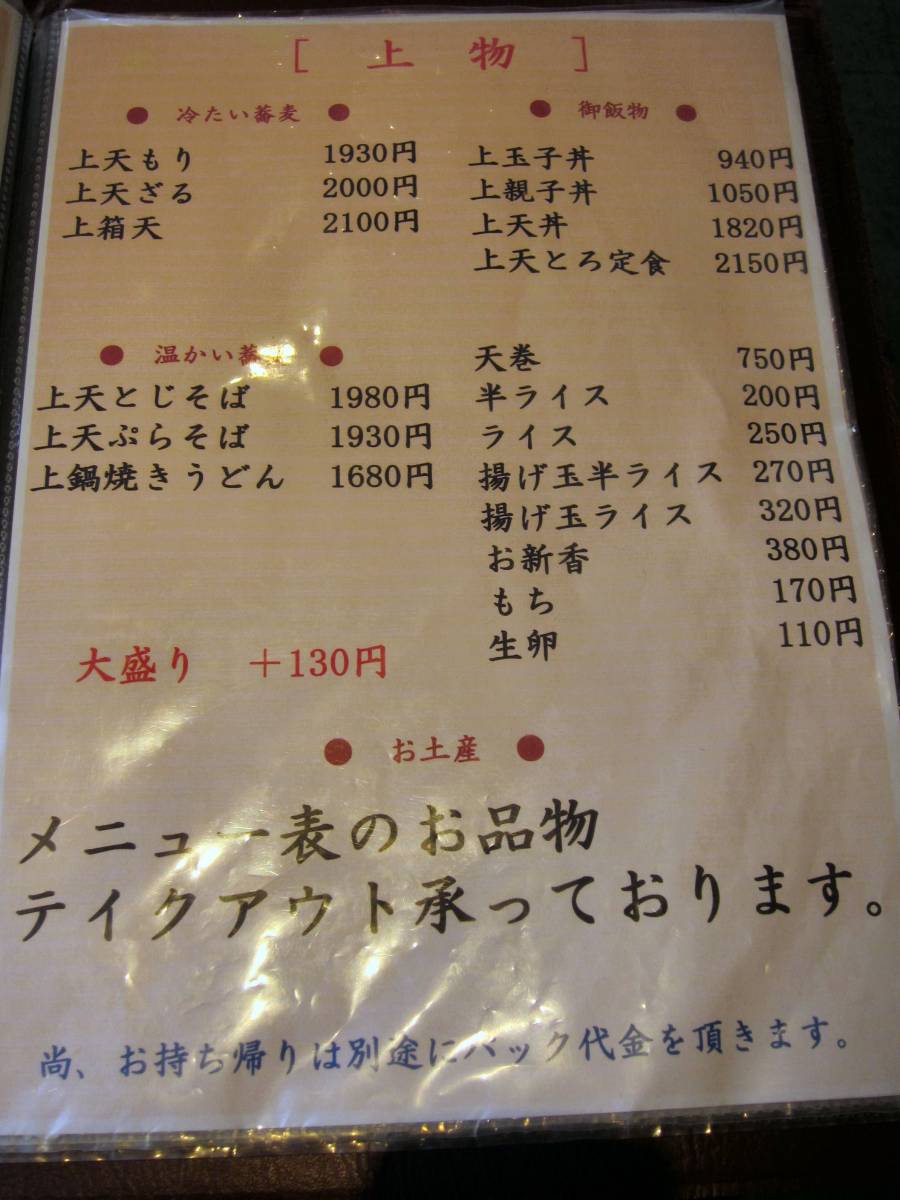 ［ 上 物 ］
● 冷たい蕎麦 ●
上天もり 1930円
上天ざる 2000円
上箱天 2100円
● 温かい蕎 ●
上天とじそば 1980円
上天ぷらそば 1930円
上鍋焼きうどん 1680円
大盛り ＋130円
● 御飯物 ●
上玉子丼 940円
上親子丼 1050円
上天丼 1820円
上天とろ定食 2150円
天巻 750円
半ライス 200円
ライス 250円
揚げ玉半ライス 270円
揚げ玉ライス 320円
お新香 380円
もち 170円
生卵 110円
● お土産 ●
メニュー表のお品物
テイクアウト承っております。
尚、お持ち帰りは別途にパック代金を頂きます。